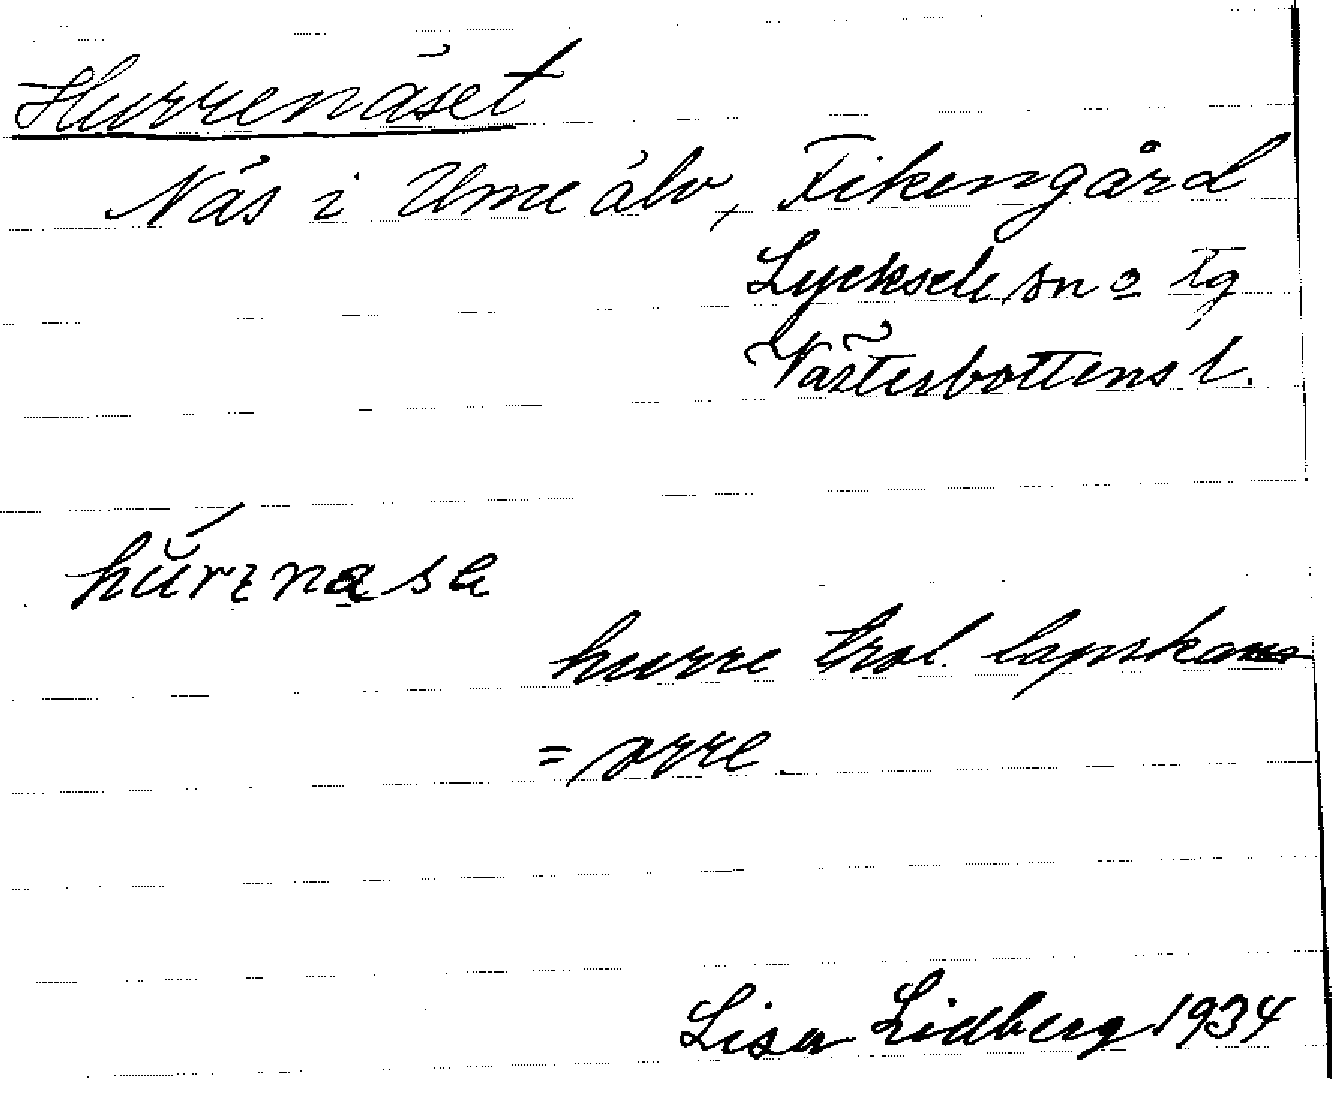 Hurrenäset
Näs i Ume älv, Fikengård
Lycksele sn o tg
Västerbottens l.
hurre trol. lapska
= orre
Lisa Lidberg 1934